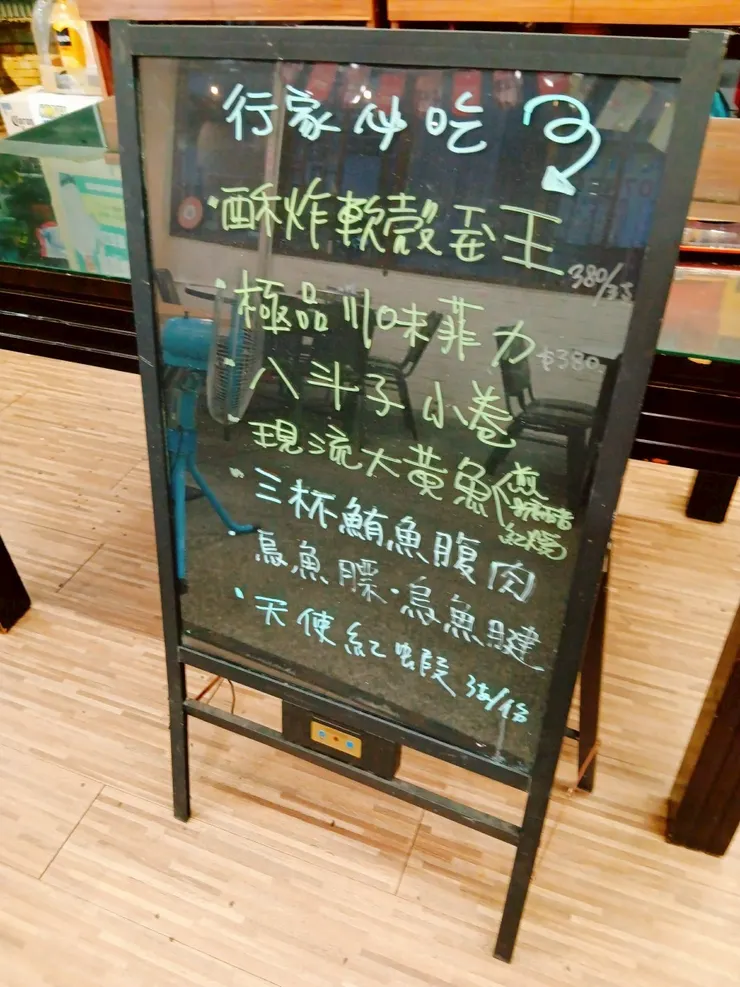 行家必吃
·酥炸軟殼蚕王 380/3s
·極品川味菲力 $380.
·八斗子小卷
·現流大黃魚 煎 糖醋 紅燒
·三杯鮪魚腹肉
·烏魚膘·烏魚腱
·天使紅蝦 3s/份